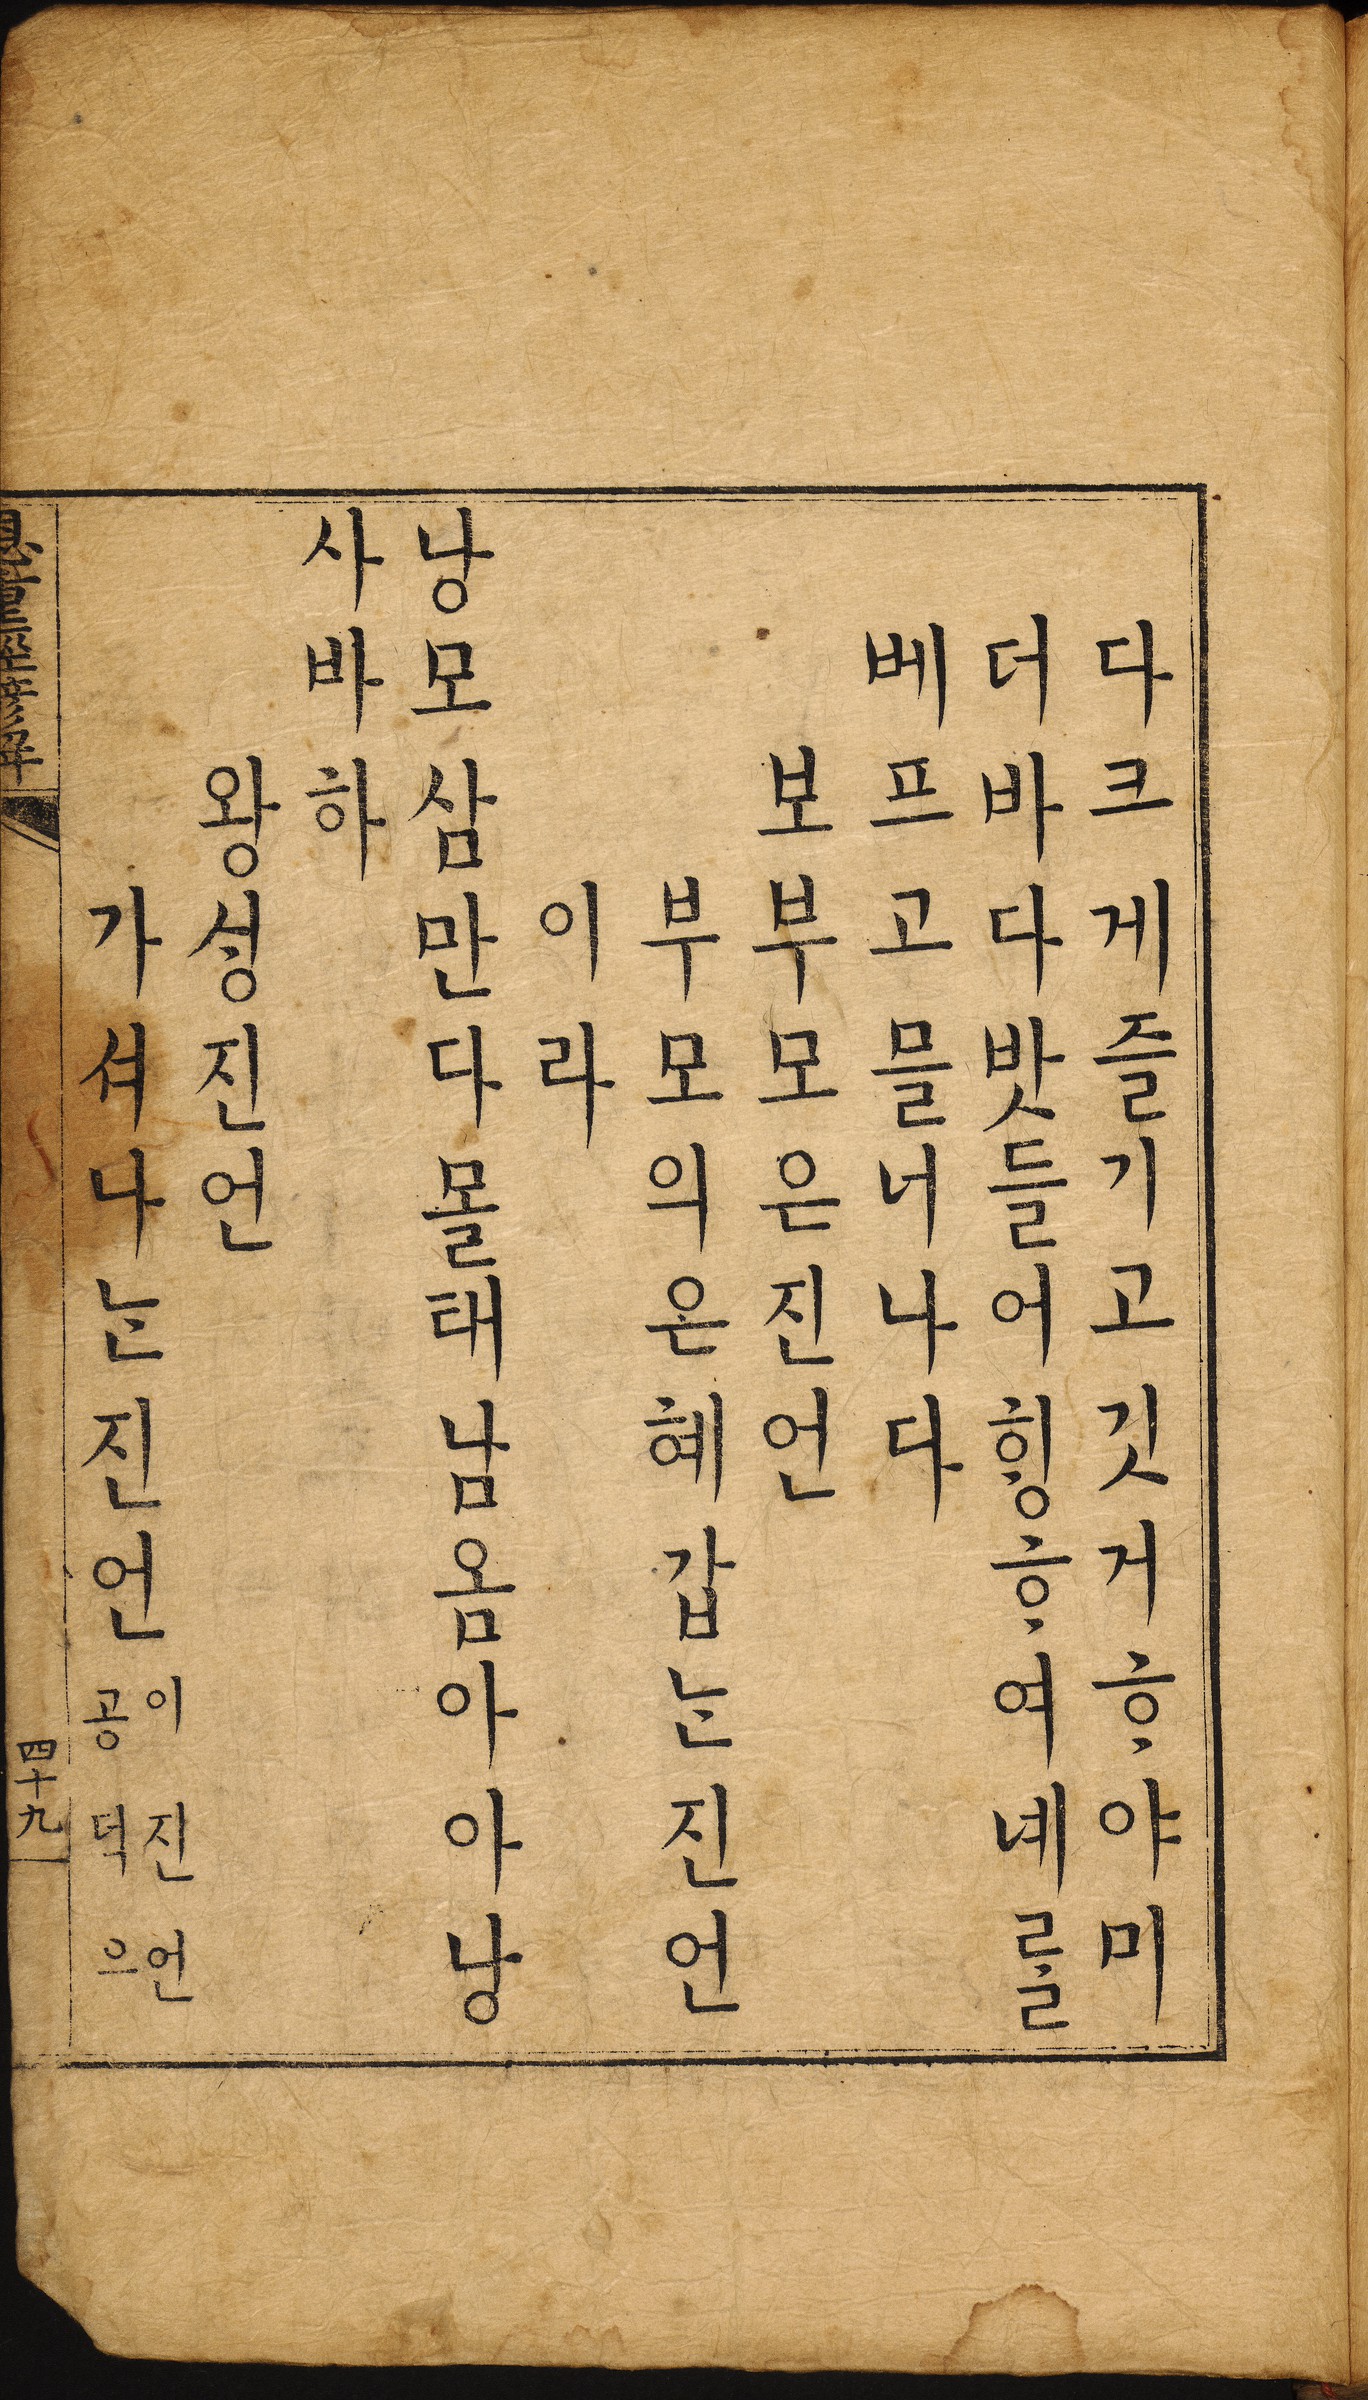 다크게즐기고깃거ᄒᆞ야미
더바다밧들어ᄒᆡᆼᄒᆞ여녜ᄅᆞᆯ
베프고믈너나다
보부모은진언
부모의은혜갑ᄂᆞᆫ진언
이라
낭모삼만다몰태남옴아아낭
사바하
왕ᄉᆡᆼ진언
가셔나ᄂᆞᆫ진언
이진언
공덕으
四十九